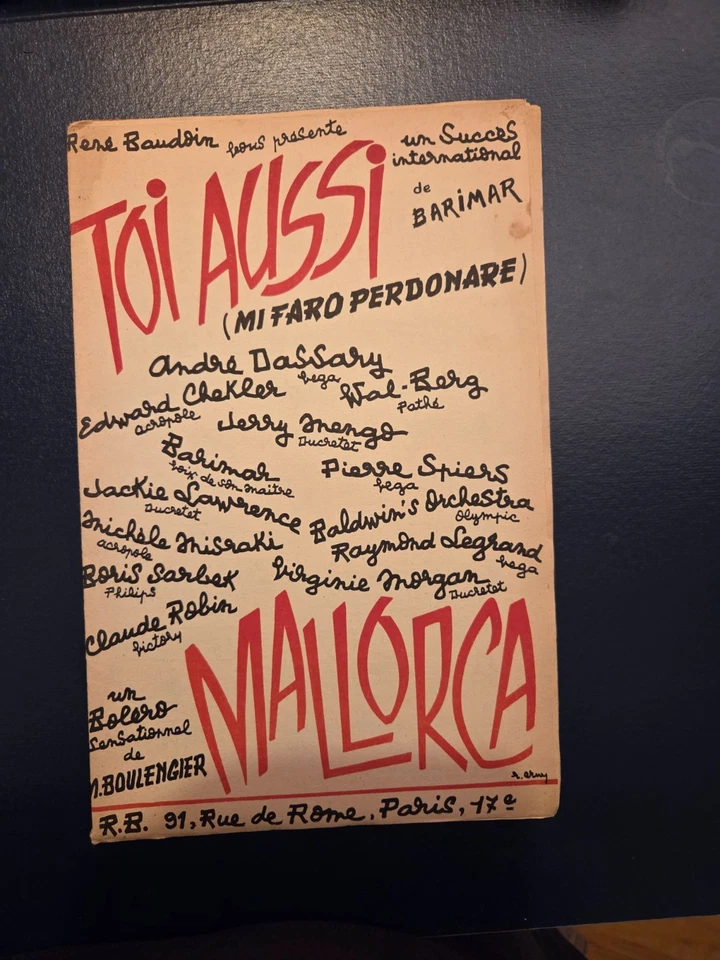 René Baudoin vous présente
un Succès
international
de
BARIMAR
TOI AUSSI
(MI FARO PERDONARE)
André Dassary
Vega
Edward Chekler
acropole
Wal-Berg
Pathé
Jerry Mengo
Ducretet
Barimar
Voix de son maitre
Pierre Spiers
Vega
Jackie Lawrence
Ducretet
Baldwin's Orchestra
Olympic
Michèle Misraki
acropole
Raymond Legrand
Vega
Boris Sarbek
Philips
Virginie Morgan
Ducretet
Claude Robin
Victory
MALLORCA
un
Bolero
Sensationnel
de
M.BOULENGIER
R.B. 91, Rue de Rome, Paris, 17e